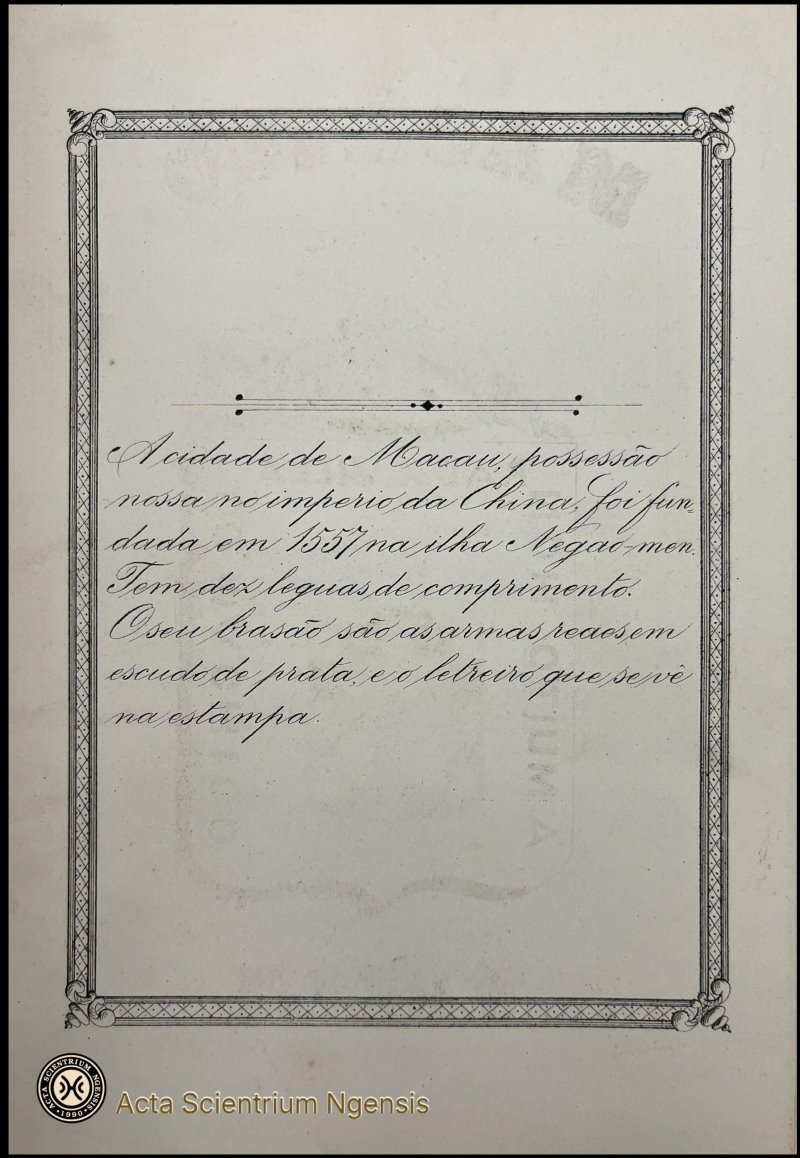 A cidade de Macau, possessão
nossa no imperio da China, foi fun=
dada em 1557 na ilha Negao-men.
Tem dez leguas de comprimento.
O seu brasão são as armas reaes em
escudo de prata, e o letreiro que se vê
na estampa.
ACTA SCIENTRIUM NGENSIS
1990
Acta Scientrium Ngensis